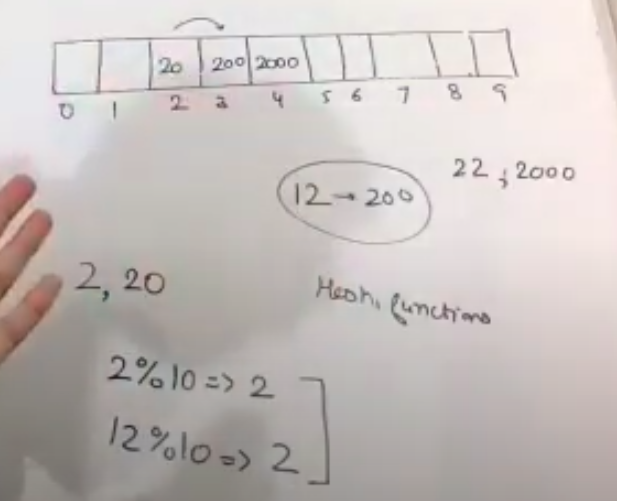 20 200 2000
0 1 2 3 4 5 6 7 8 9
12 → 200
22 ; 2000
2, 20
Hash functions
2%10 => 2
12%10 => 2